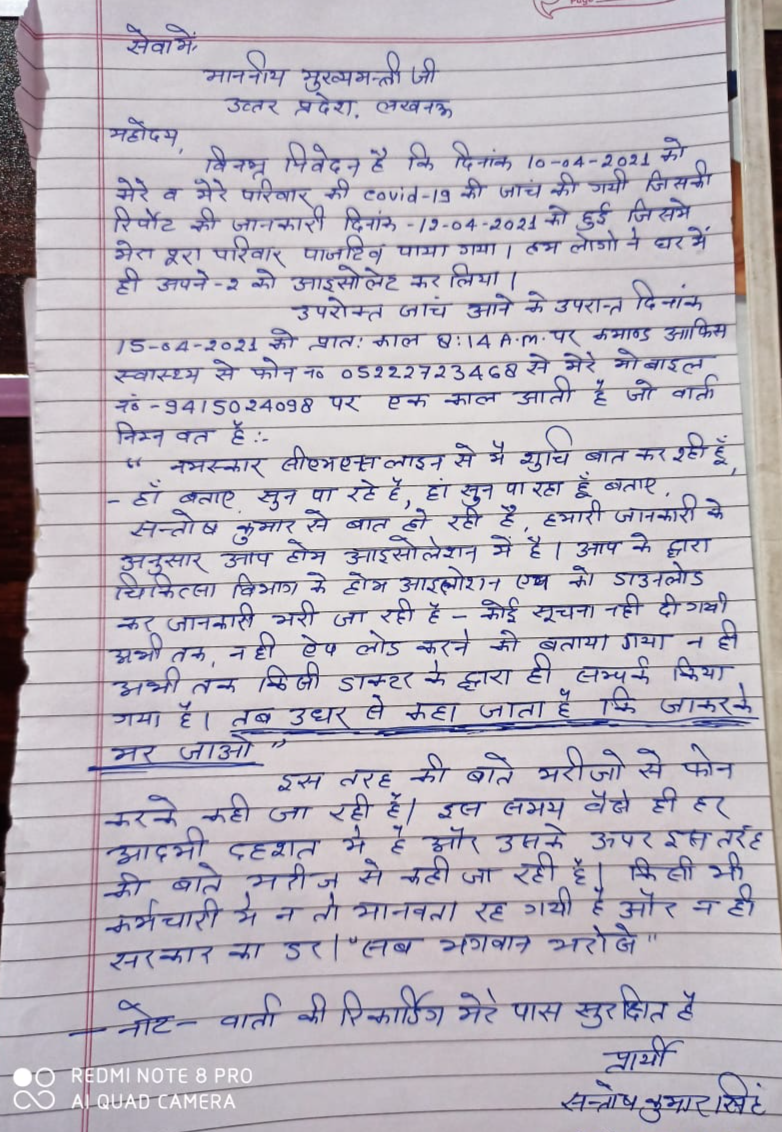 Page
सेवा में,
माननीय मुख्यमन्त्री जी
उत्तर प्रदेश, लखनऊ
महोदय,
विनम्र निवेदन है कि दिनांक 10-04-2021 को
मेरे व मेरे परिवार की covid-19 की जाचं की गयी जिसकी
रिर्पोट की जानकारी दिनांक -12-04-2021 को हुई जिसमे
मेरा पूरा परिवार पाजटिव पाया गया। हम लोगो ने घर में
ही अपने-२ को आइसोलेट कर लिया।
उपरोक्त जाचं आने के उपरान्त दिनांक
15-04-2021 को प्रातः काल 8:14 A.m. पर कमाण्ड आफिस
स्वास्थ्य से फोन न० 05222723468 से मेरे मोबाइल
नं० -9415024098 पर एक काल आती है जो वार्ता
निम्न वत है :-
“ नमस्कार सीएमएस लाइन से मै शुचि बात कर रही हूँ,
- हाँ बताए, सुन पा रहे है, हां सुन पा रहा हूँ बताए,
सन्तोष कुमार से बात हो रही है, हमारी जानकारी के
अनुसार आप होम आइसोलेशन में है। आप के द्वारा
चिकित्सा विभाग के होम आइसोलेशन एप को डाउनलोड
कर जानकारी भरी जा रही है - कोई सूचना नही दी गयी
अभी तक, न ही ऐप लोड करने को बताया गया न ही
अभी तक किसी डाक्टर के द्वारा ही सम्पर्क किया
गया है। तब उधर से कहा जाता है कि जाकरके
मर जाओ ”
इस तरह की बाते मरीजो से फोन
करके कही जा रही है। इस समय वैसे ही हर
आदमी दहशत मे है और उसके ऊपर इस तरह
की बाते मरीज से कही जा रही है। किसी भी
कर्मचारी मे न तो मानवता रह गयी है और न ही
सरकार का डर। "सब भगवान भरोसे"
- नोट - वार्ता की रिकार्डिग मेरे पास सुरक्षित है
प्रार्थी
सन्तोष कुमार सिहं
REDMI NOTE 8 PRO
AI QUAD CAMERA